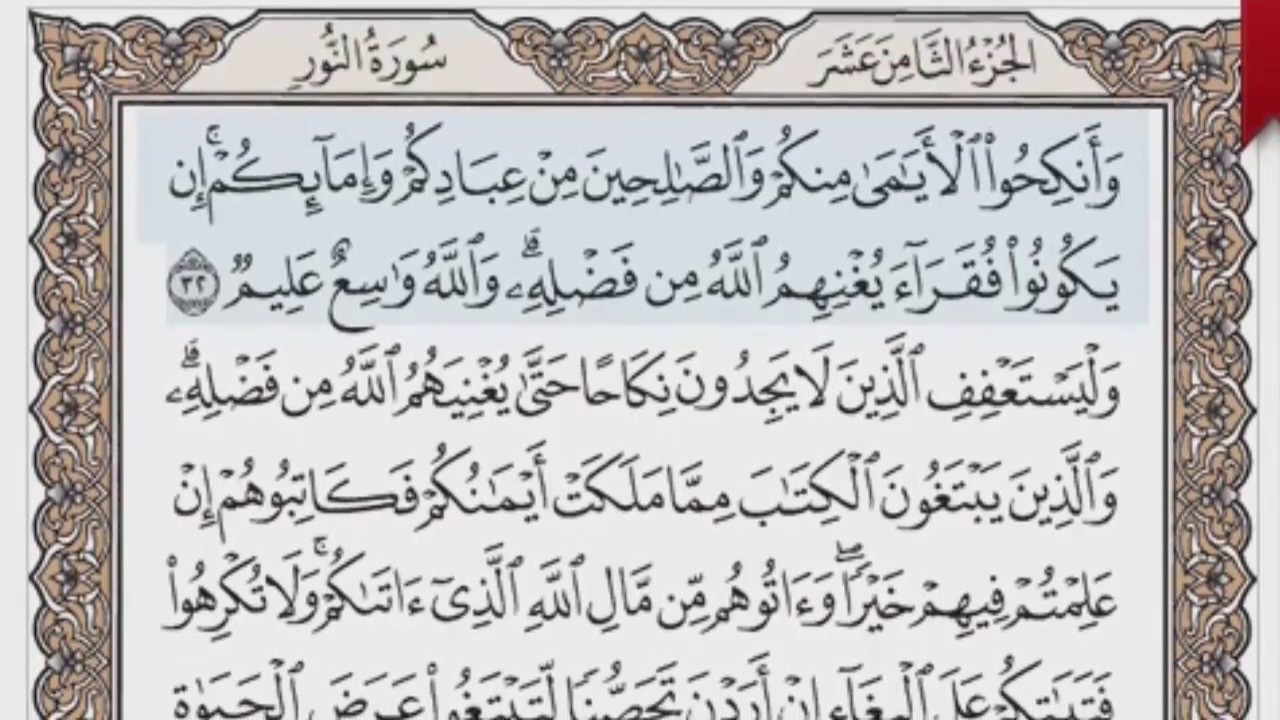 الجُزْءُ الثَّامِنَ عَشَرَ
سُورَةُ النُّورِ
وَأَنكِحُوا۟ ٱلْأَيَـٰمَىٰ مِنكُمْ وَٱلصَّـٰلِحِينَ مِنْ عِبَادِكُمْ وَإِمَآئِكُمْ ۚ إِن
يَكُونُوا۟ فُقَرَآءَ يُغْنِهِمُ ٱللَّهُ مِن فَضْلِهِۦ ۗ وَٱللَّهُ وَٰسِعٌ عَلِيمٌ ٣٢
وَلْيَسْتَعْفِفِ ٱلَّذِينَ لَا يَجِدُونَ نِكَاحًا حَتَّىٰ يُغْنِيَهُمُ ٱللَّهُ مِن فَضْلِهِۦ ۗ
وَٱلَّذِينَ يَبْتَغُونَ ٱلْكِتَـٰبَ مِمَّا مَلَكَتْ أَيْمَـٰنُكُمْ فَكَاتِبُوهُمْ إِنْ
عَلِمْتُمْ فِيهِمْ خَيْرًا ۖ وَءَاتُوهُم مِّن مَّالِ ٱللَّهِ ٱلَّذِىٓ ءَاتَىٰكُمْ ۚ وَلَا تُكْرِهُوا۟
فَتَيَـٰتِكُمْ عَلَى ٱلْبِغَآءِ إِنْ أَرَدْنَ تَحَصُّنًا لِّتَبْتَغُوا۟ عَرَضَ ٱلْحَيَوٰةِ